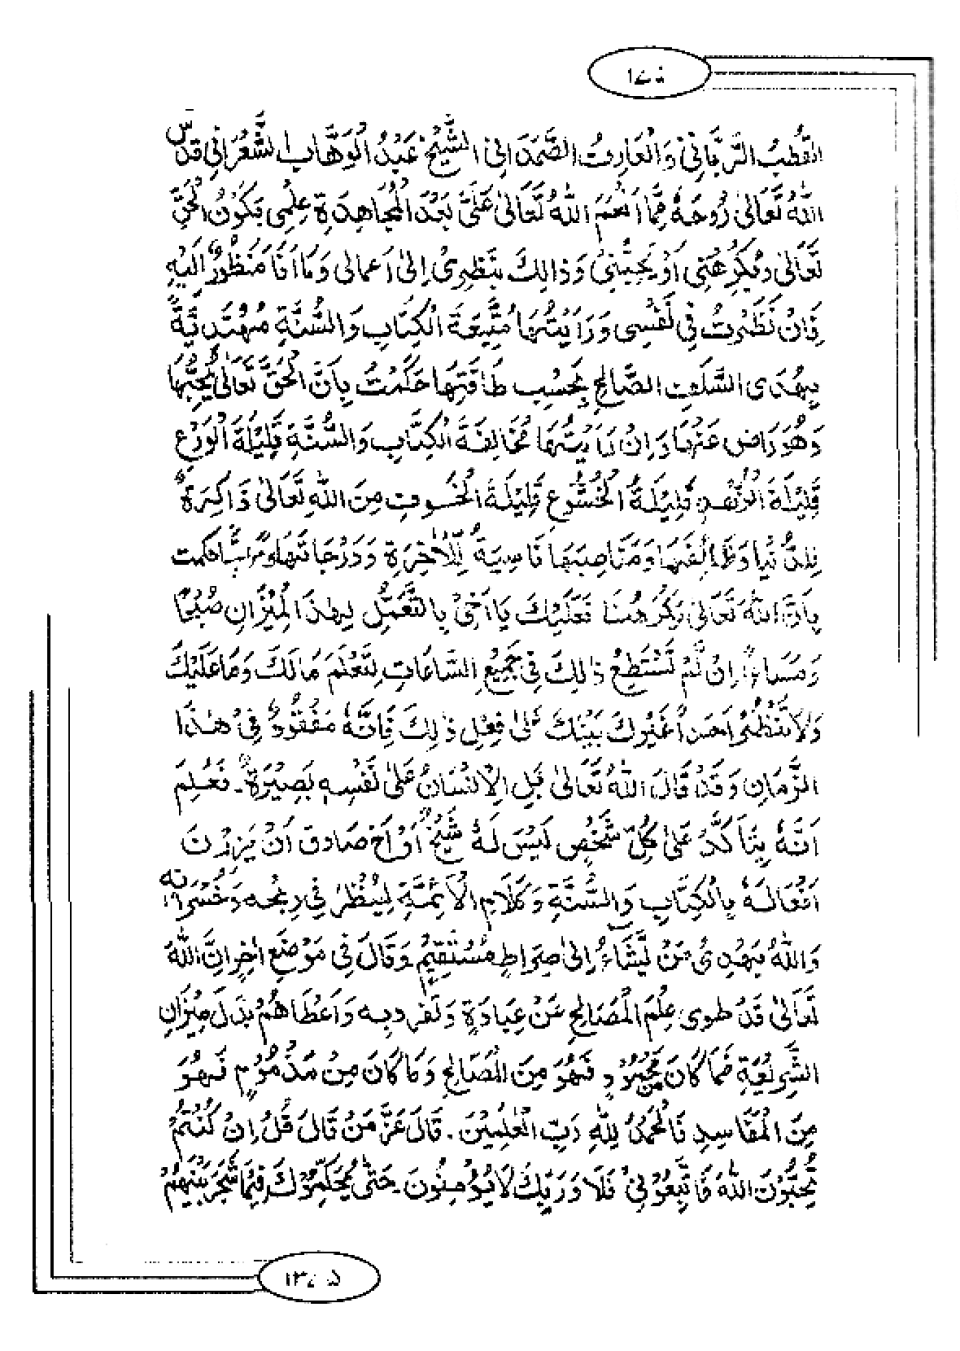 القُطْبُ الرَّبَّانِيْ وَالْعَارِفُ الصَّمَدَانِى الشَّيْخُ عَبْدُ الْوَهَّابِ الشَّعْرَانِي قَدَّسَ
اللهُ تَعَالٰى رُوحَهٗ مِمَّا اَنْعَمَ اللهُ تَعَالٰى عَلَيَّ بَعْدَ الْمُجَاهِدَةِ عِلْمِى بِكَوْنِ الْحَقِّ
تَعَالٰى يَكْرَهُنِى اَوْ يُحِبُّنِيْ وَذَالِكَ بِنَظْرِىْ اِلٰى اَعْمَالِى وَمَا اَنَا مَنْظُوْرٌ اِلَيْهِ
فَاِنْ نَظَرْتُ فِي نَفْسِى وَرَاَيْتُهَا مُتَّبِعَةَ الْكِتَابِ وَالسُّنَّةِ مُهْتَدِيَّةً
بِهُدَى السَّلَفِ الصَّالِحِ بِحَسْبِ طَاقَتِهَا حَكَمْتُ بِاَنَّ الْحَقَّ تَعَالٰى يُحِبُّهَا
وَهُوَ رَاضٍ عَنْهَا وَاِنْ رَاَيْتُهَا مُخَالِفَةَ الْكِتَابِ وَالسُّنَّةِ قَلِيْلَةَ الْوَرَعِ
قَلِيْلَةَ الزُّهْدِ قَلِيْلَةَ الْخُشُوْعِ قَلِيْلَةَ الْخَوفِ مِنَ اللهِ تَعَالٰى ذَاكِرَةً
لِلدُّنْيَا وَظَائِفَهَا وَمَنَاصِبَهَا نَاسِيَةً لِّلْاٰخِرَةِ وَدَرَجَاتَهَا حكمت
بِاَنَّ اللهَ تَعَالٰى يَكْرَهُنَا فَعَلَيْكَ يَا اَخِىْ بِالتَّعَمُّلِ بِهٰذَ الْمِيْزَانِ صُبْحًا
وَمَسَاءً اِنْ لَّمْ تَسْتَطِعْ ذٰلِكَ فِيْ جَمِيْعِ السَّاعَاتِ لِتَعْلَمَ مَا لَكَ وَمَا عَلَيْكَ
وَلَا تَنْظُرْ اَحَداً غَيْرَكَ بَيْنَكَ عَلٰى فِعْلِ ذٰلِكَ فَاِنَّهٗ مَفْقُوْدٌ فِيْ هٰذَا
الزَّمَانِ وَقَدْ قَالَ اللهُ تَعَالٰى بَلِ الْاِنْسَانُ عَلٰى نَفْسِهٖ بَصِيْرَةٌ۔ فَعُلِمَ
اَنَّهٗ يَتَاَكَّدُ عَلٰى كُلِّ شَخْصٍ لَيْسَ لَهٗ شَيْخٌ اَوْ اَخٌ صَادِقٌ اَنْ يَزِنَ
اَفْعَالَهٗ بِالْكِتَابِ وَالسُّنَّةِ وَكَلَامِ الْاَئِمَّةِ لِيَنْظُرَ فِي رِبْحِهٖ وَخُسْرَانِهٖ
وَاللهُ يَهْدِىْ مَنْ يَّشَاءُ اِلٰى صِرَاطٍ مُّسْتَقِيْمٍ وَقَالَ فِي مَوْضَعٍ اٰخَرَ اِنَّ اللهَ
تَعَالٰى قَدْ طَوٰى عِلْمَ الْمَصَالِحِ عَنْ عِبَادِهٖ وَتَفَرَّدَ بِهٖ وَاَعْطَاهُمْ بَدَلَ مِيْزَانِ
الشَّرِيْعَةِ فَمَا كَانَ مِنْ مَحْمُوْدٍ فَهُوَ مِنَ الْمَصَالِحِ وَمَا كَانَ مِنْ مَذْمُوْمٍ فَهُوَ
مِنَ الْمَفَاسِدِ فَالْحَمْدُ لِلّٰهِ رَبِّ الْعٰلَمِيْنَ۔ قَالَ عَزَّ مَنْ قَالَ قُلْ اِنْ كُنْتُمْ
تُحِبُّوْنَ اللهَ فَاتَّبِعُوْنِيْ فَلَا وَرَبِّكَ لَا يُؤْمِنُوْنَ حَتّٰى يُحَكِّمُوْكَ فِيْمَا شَجَرَ بَيْنَهُمْ